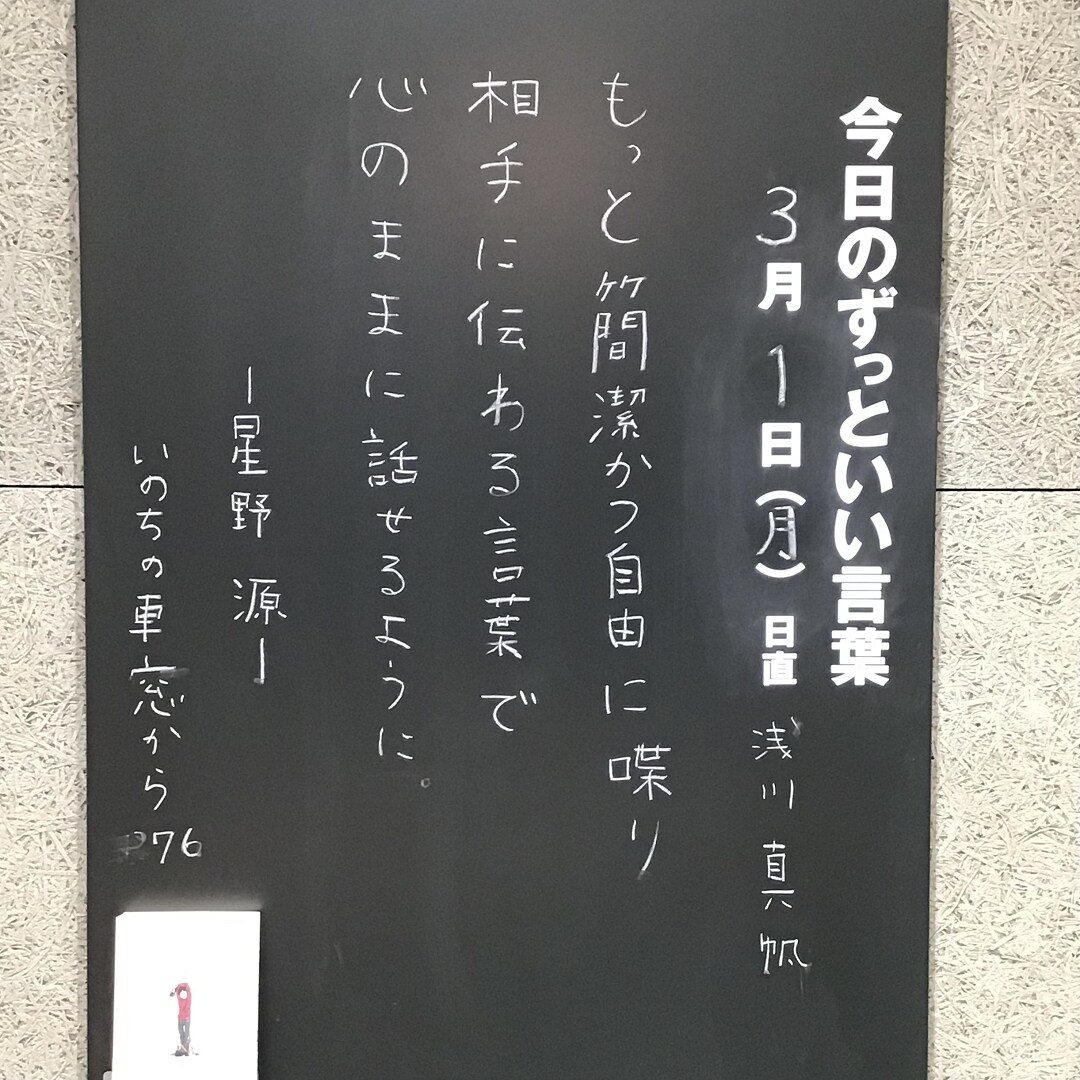 今日のずっといい言葉
3月1日(月) 日直 浅川 真帆
もっと簡潔かつ自由に喋り
相手に伝わる言葉で
心のままに話せるように。
ー星野 源ー
いのちの車窓から P76